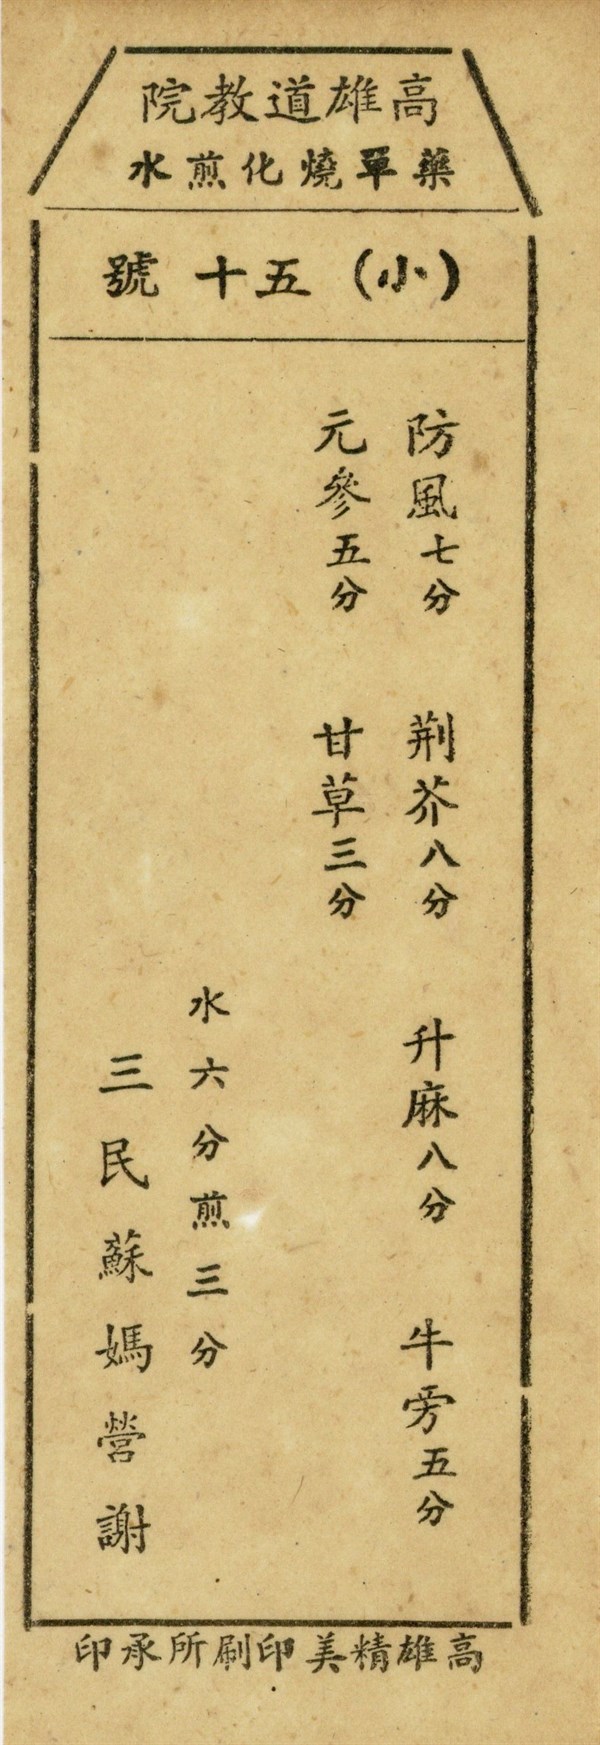 高雄道教院
藥單燒化煎水
(小)五十號
防風七分 荆芥八分 升麻八分 牛旁五分
元參五分 甘草三分
水六分煎三分
三民蘇媽營謝
高雄精美印刷所承印